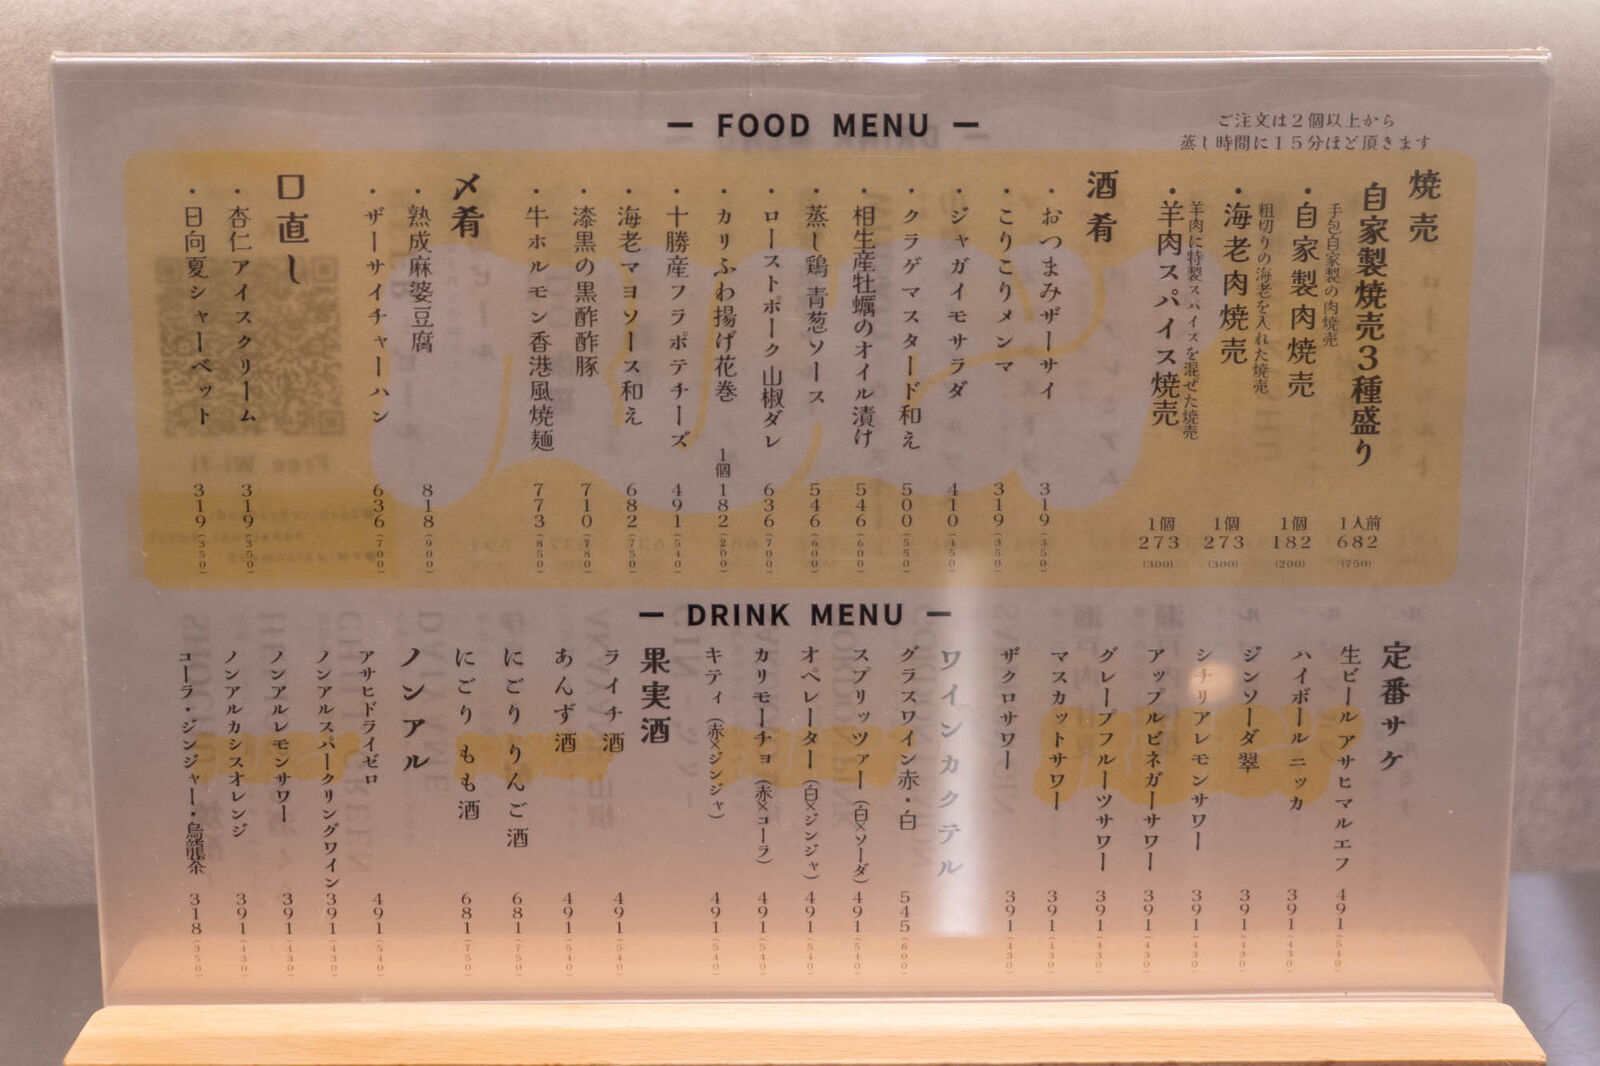 ― FOOD MENU ―
ご注文は2個以上から
蒸し時間に15分ほど頂きます
焼売
自家製焼売3種盛り 1人前 682 (750)
・自家製肉焼売 1個 182 (200)
手包自家製の肉焼売
・海老肉焼売 1個 273 (300)
粗切りの海老を入れた焼売
・羊肉スパイス焼売 1個 273 (300)
羊肉に特製スパイスを混ぜた焼売
酒肴
・おつまみザーサイ 319 (350)
・こりこりメンマ 319 (350)
・ジャガイモサラダ 410 (450)
・クラゲマスタード和え 500 (550)
・相生産牡蠣のオイル漬け 546 (600)
・蒸し鶏 青葱ソース 546 (600)
・ローストポーク 山椒ダレ 636 (700)
・カリふわ揚げ花巻 1個 182 (200)
・十勝産フラポテチーズ 491 (540)
・海老マヨソース和え 682 (750)
・漆黒の黒酢酢豚 710 (780)
・牛ホルモン香港風焼麺 773 (850)
〆肴
・熟成麻婆豆腐 818 (900)
・ザーサイチャーハン 636 (700)
口直し
・杏仁アイスクリーム 319 (350)
・日向夏シャーベット 319 (350)
― DRINK MENU ―
定番サケ
生ビール アサヒマルエフ 491 (540)
ハイボール ニッカ 391 (430)
ジンソーダ 翠 391 (430)
シチリアレモンサワー 391 (430)
アップルビネガーサワー 391 (430)
グレープフルーツサワー 391 (430)
マスカットサワー 391 (430)
ザクロサワー 391 (430)
ワインカクテル
グラスワイン 赤・白 545 (600)
スプリッツァー (白×ソーダ) 491 (540)
オペレーター (白×ジンジャ) 491 (540)
カリモーチョ (赤×コーラ) 491 (540)
キティ (赤×ジンジャ) 491 (540)
果実酒
ライチ酒 491 (540)
あんず酒 491 (540)
にごりりんご酒 681 (750)
にごりもも酒 681 (750)
ノンアル
アサヒドライゼロ 491 (540)
ノンアルスパークリングワイン 391 (430)
ノンアルレモンサワー 391 (430)
ノンアルカシスオレンジ 391 (430)
コーラ・ジンジャー・烏龍茶 318 (350)